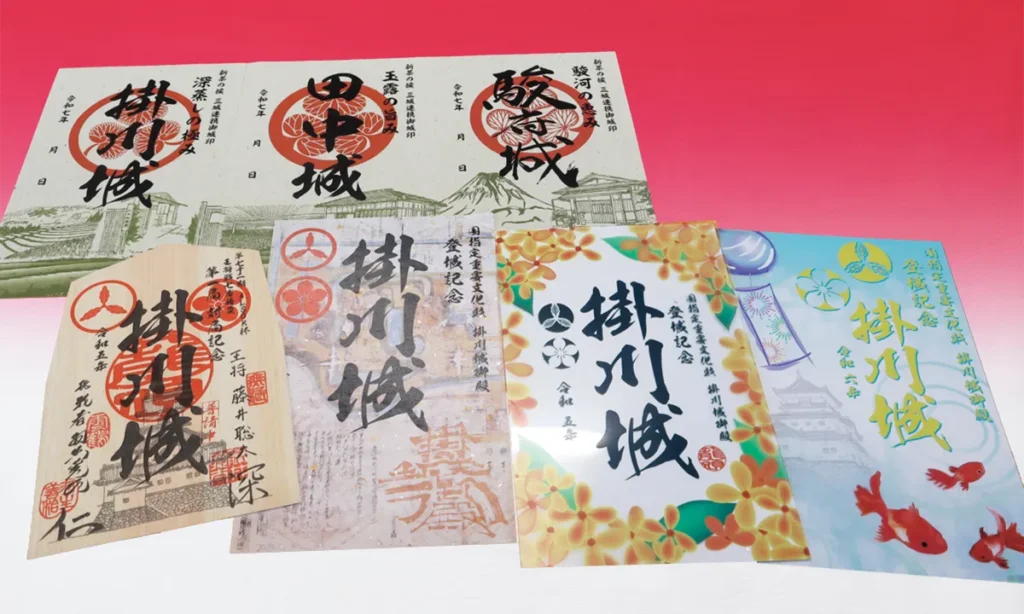 新茶の陵 三城連携御城印
深蒸しの極み
掛川城
令和七年
月
日
新茶の陵 三城連携御城印
玉露の旨み
田中城
令和七年
月
日
新茶の陵 三城連携御城印
駿河の恵み
駿府城
令和七年
月
日
第一局対局記念
掛川城
令和五年
王将 藤井聡太
国指定重要文化財 掛川城御殿
登城記念
掛川城
国指定重要文化財 掛川城御殿
登城記念
掛川城
令和 五年
国指定重要文化財 掛川城御殿
登城記念
掛川城
令和 六年